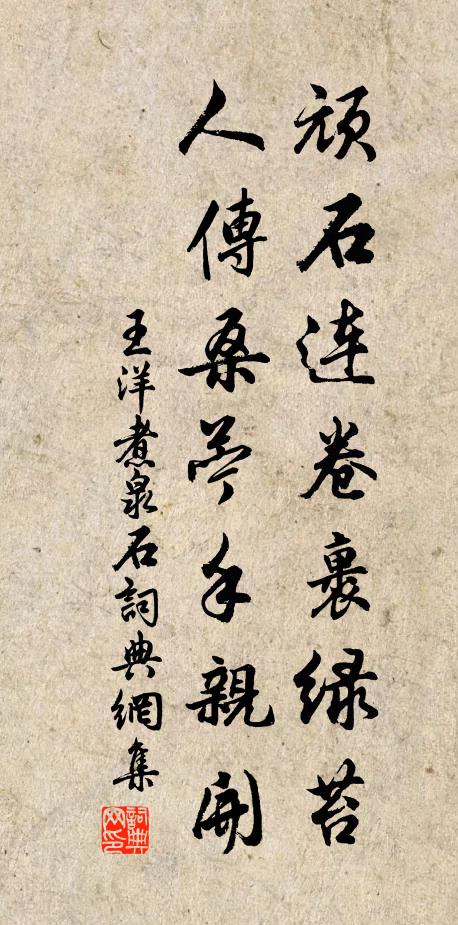 頑石連卷裹緑苔
人傳桑苧手親開
王洋煮泉石詞典網集
詞典网印